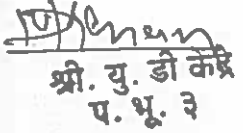 श्री. यु. डी केंद्रे
प. भू. ३